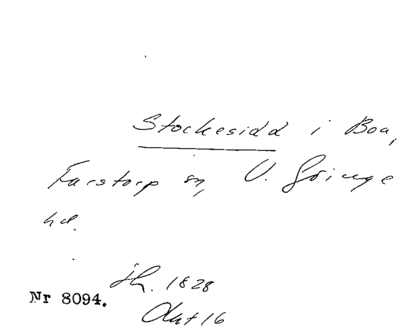 Stockesidd i Boa,
Farstorp sn, V. Göinge
hd.
jh. 1828
Nr 8094.
Akt 16